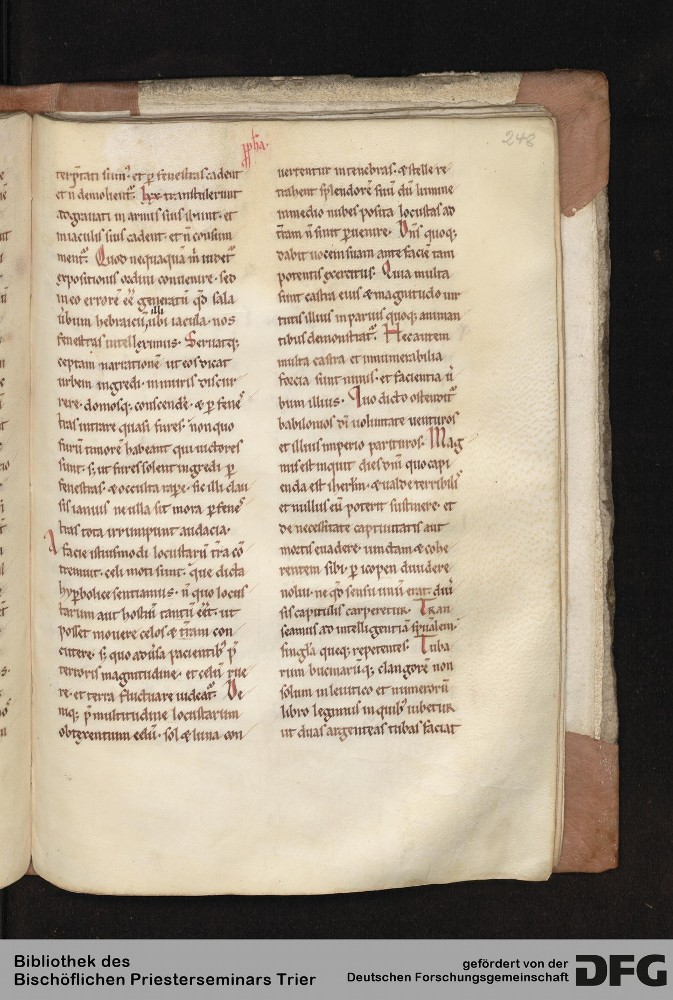 ꝓph̄a.
248
terp̄tati sum᷒. et ꝑ fenestras cadent
et n̄ demolient᷑. lxx. transtulerunt
adgrauati in armis suis ibunt. et
in iaculis suis cadent. et n̄ consum
ment᷑. Quod nequaquā m̄ uidet᷑
expositionis ordini conuenire. sed
in eo errorē eē. generatū qd̄ sala
ubi hebraicū illi iacula. nos
fenestras intelleximus. Seruatq;
ceptam narrationē ut eos dicat
urbem ingredi. in muris discur
rere. domosq; conscendˀe. & ꝑ fenes
tras intrare quasi fures. non quo
furū timorē habeant qui uictores
sunt. s; ut fures solent ingredi ꝑ
fenestras. & occulta rapˀe. sic illi clau
sis ianuis ne ulla sit mora ꝑ fenes
tras tota irrumpunt audacia.
A facie istiusmodi locustarū tˀra cō
tremuit. celi moti sunt. que dicta
hyꝑbolice sentiamus. n̄ quo locus
tarum aut hostiū tantū eēt. ut
posset mouere celos & tˀram con
cutere. s; quo aduˀsa pacientib; p̄
terroris magnitudine. et celū rue
re. et terra fluctuare uideat᷑. De
niq; p̄ multitudine locustarum
obtexentium celū. sol & luna con
uertentur in tenebras. & stelle re
trahent splendorē suū. dū lumine
in medio nubes posita locustas ad
tˀram n̄ sinit ꝑuenire. Dn̄s quoq;
dabit uocem suam ante faciē tam
potentis exercitus. Quia multa
sunt castra eius & magnitudo uir
tutis illius in paruis quoq; animan
tibus demonstrat᷑. Hec autem
multa castra et innumerabilia
forcia sunt nimis. et facientia ū
bum illius. Quo dicto ostendit᷑
babilonios dī uoluntate uenturos
et illius imperio parituros. Mag
nus est inquit dies dn̄i quo capi
enda est ihrlm̄. & ualde terribilis
et nullus eū poterit sustinere. et
de necessitate captiuitatis aut
mortis euadere. iunctam & cohe
rentem sibi. ꝑ icopen diuidere
nolui. ne qd̄ sensu unū erat. diuˀ
sis capitulis carperetur. Tran
seamus ad intelligentiā sp̄ualem.
singla queq; repetentes. Tuba
rum bucinarūq; clangorē non
solum in leuitico et numerorū
libro legimus in quib; iubetur
ut duas argenteas tubas faciat
Bibliothek des
Bischöflichen Priesterseminars Trier
gefördert von der
Deutschen Forschungsgemeinschaft
DFG